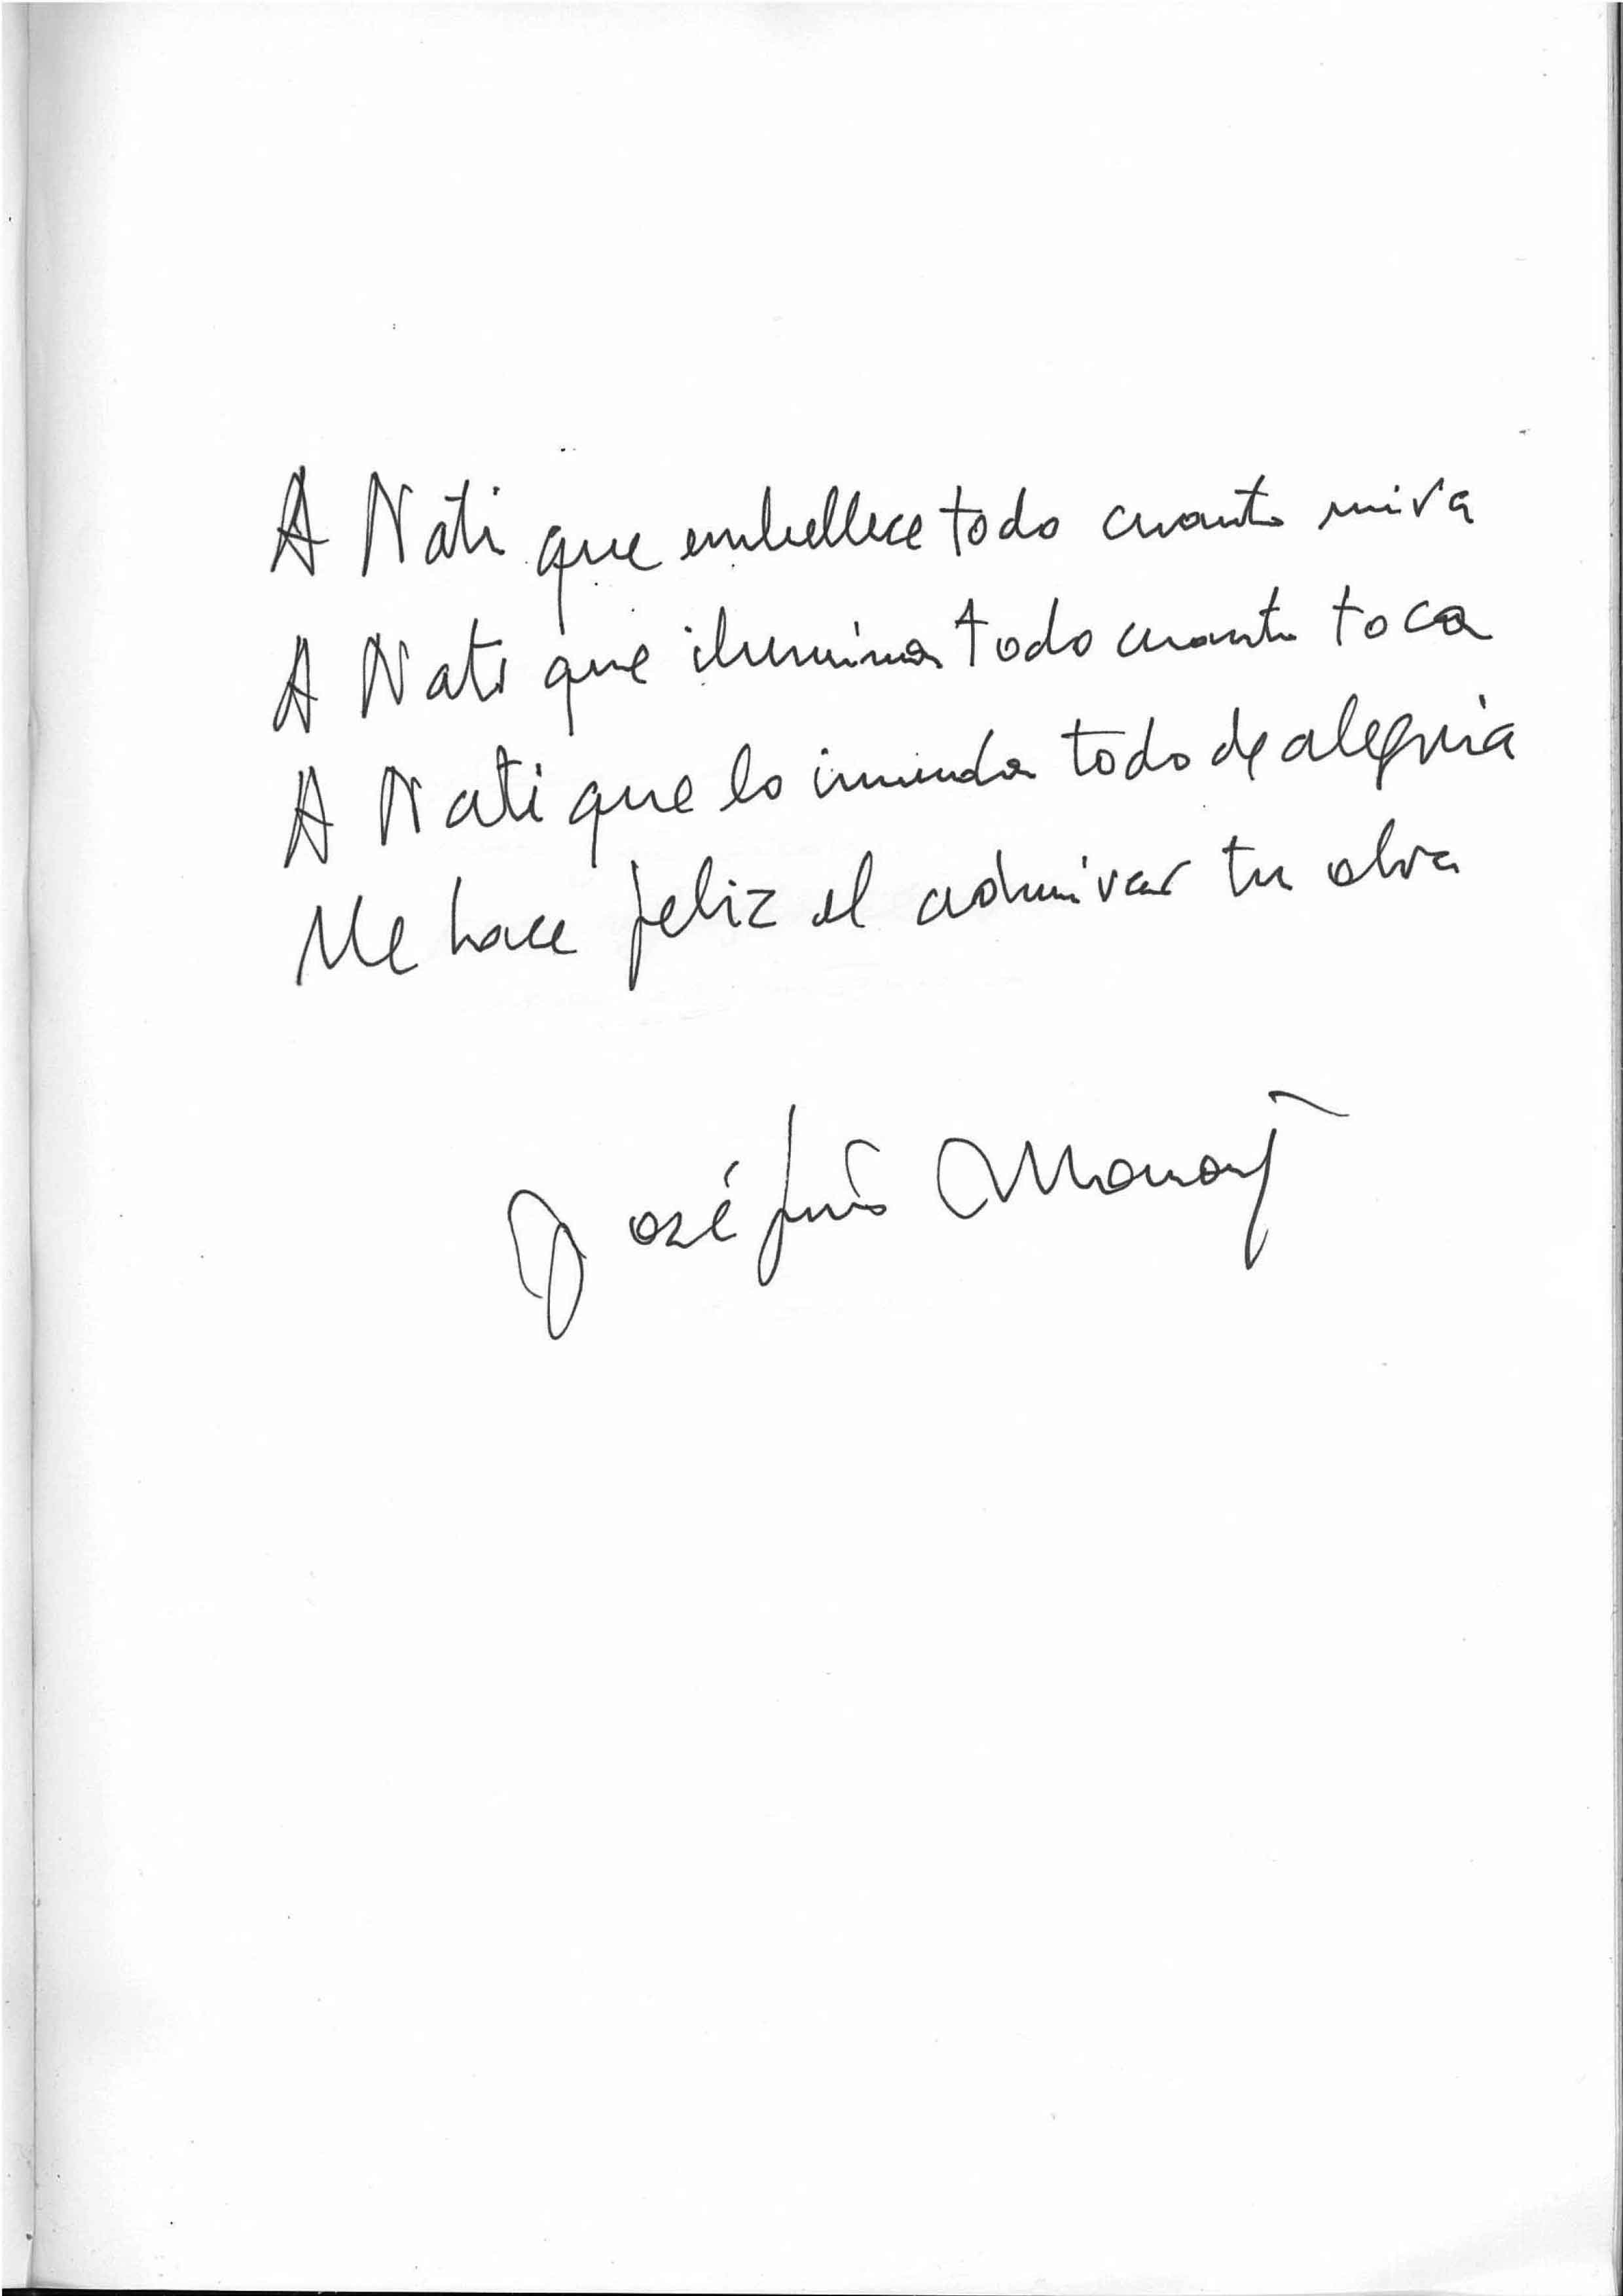 A Nati que embellece todo cuanto mira
A Nati que ilumina todo cuanto toca
A Nati que lo inunda todo de alegria
Me hace feliz el admirar tu obra
José Luis